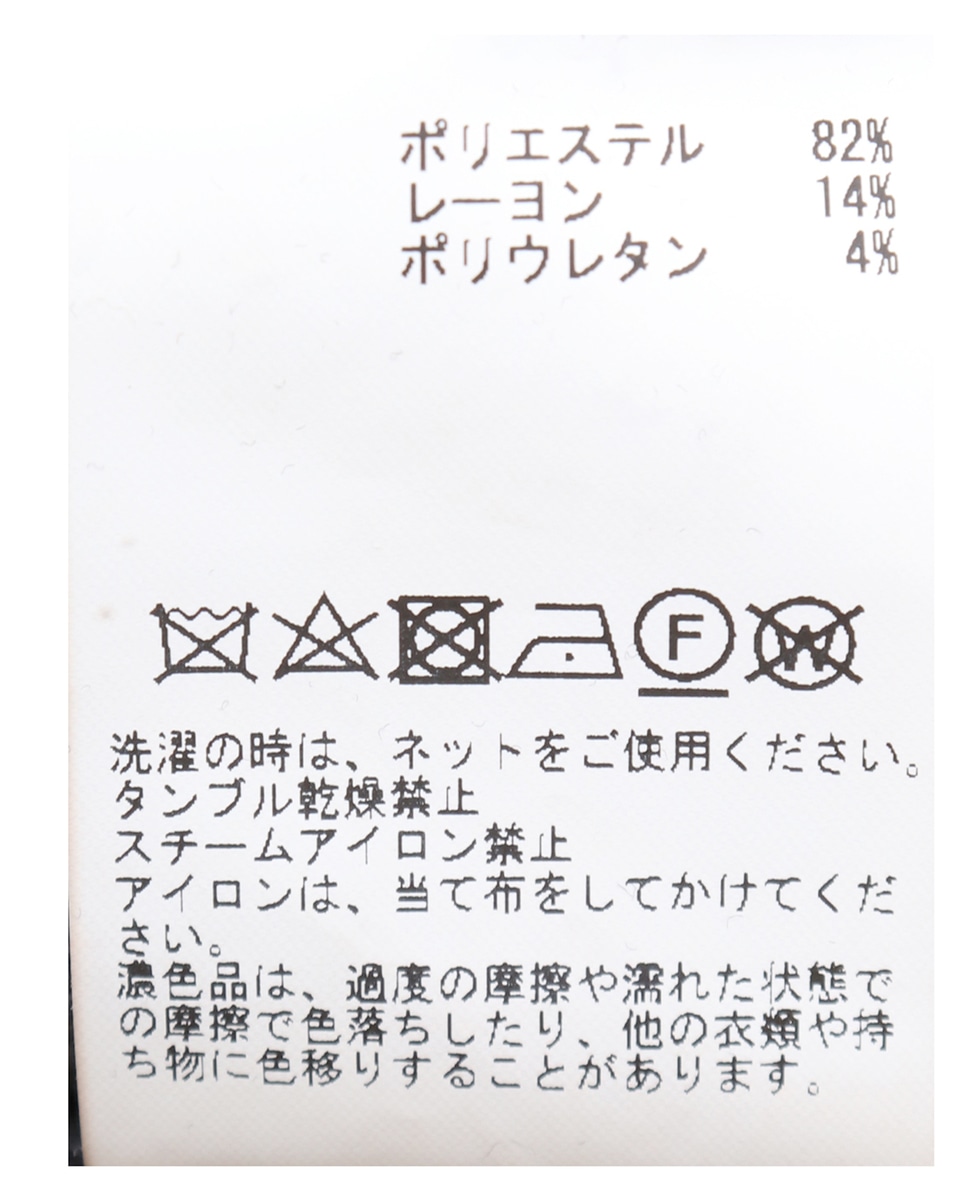 ポリエステル 82%
レーヨン 14%
ポリウレタン 4%
F W
洗濯の時は、ネットをご使用ください。
タンブル乾燥禁止
スチームアイロン禁止
アイロンは、当て布をしてかけてくだ
さい。
濃色品は、過度の摩擦や濡れた状態で
の摩擦で色落ちしたり、他の衣類や持
ち物に色移りすることがあります。